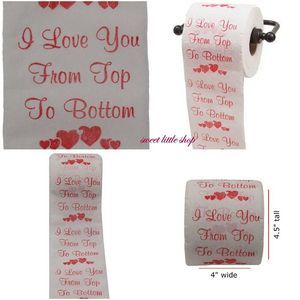 I Love You
From Top
To Bottom
I Love You
From Top
To Bottom
I Love You
From Top
sweet little shop
To Bottom
I Love You
From Top
To Bottom
I Love You
From Top
To Bottom
To Bottom
I Love You
From Top
To Bottom
I Love You
4" wide
4.5" tall